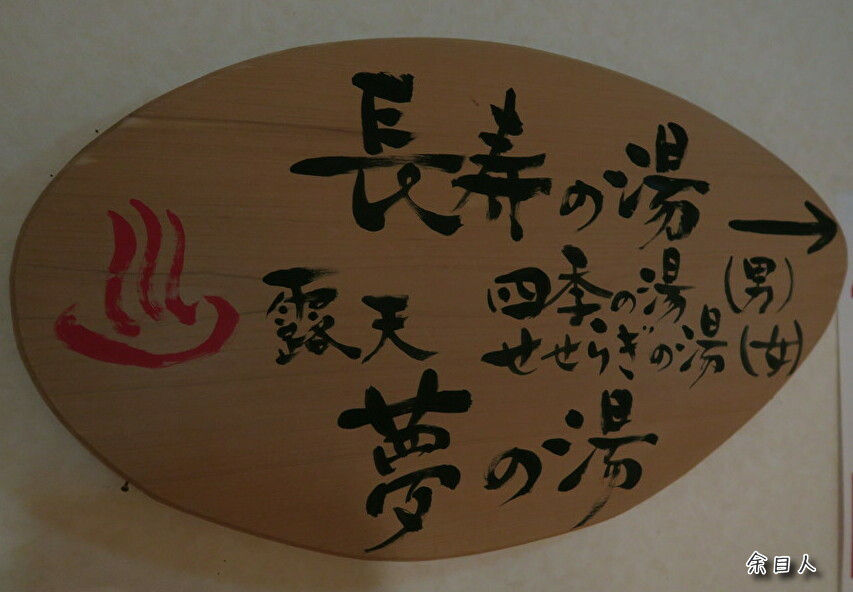 長寿の湯
→
露天 四季の湯(男)
せせらぎの湯(女)
夢の湯
余目人